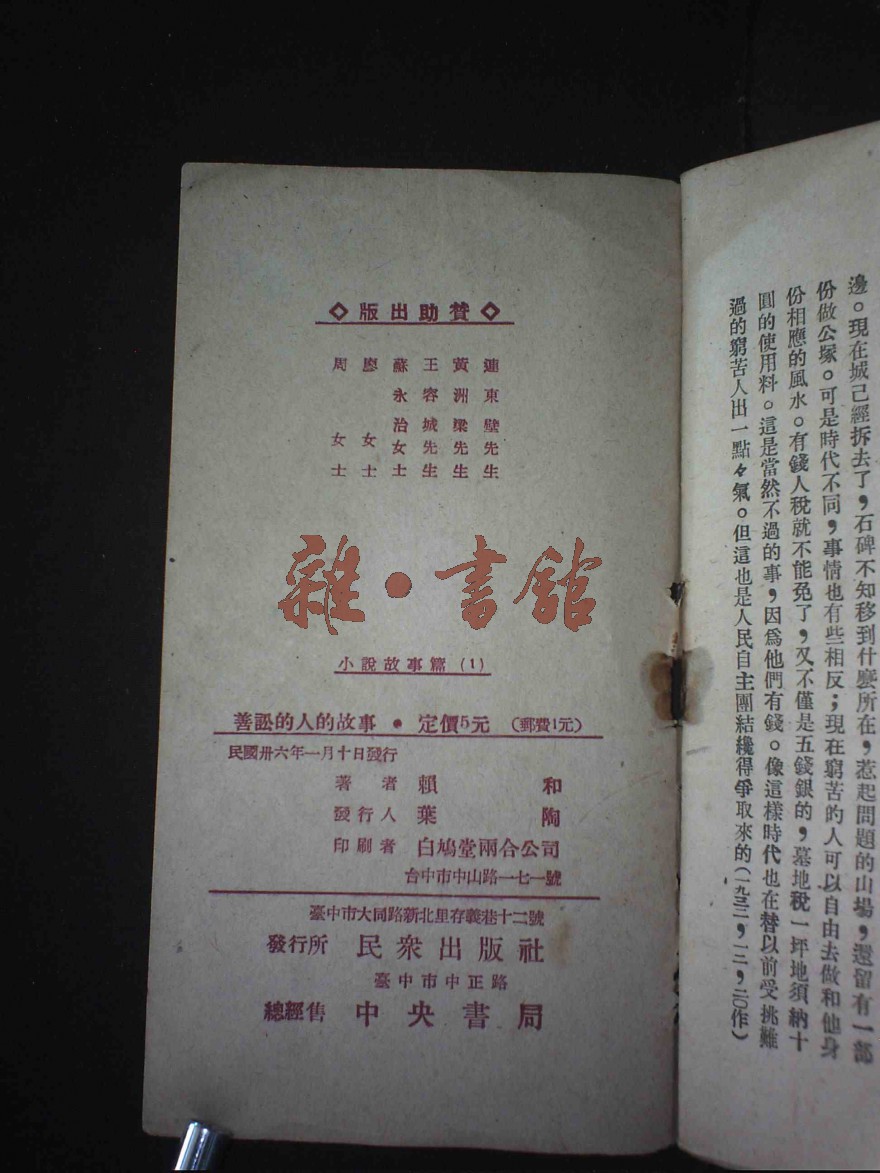 邊。現在城已經拆去了,石碑不知移到什麼所在,惹起問題的山場,還留有一部
份做公塚。可是時代不同,事情也有些相反;現在窮苦的人可以自由去做和他身
份相應的風水。有錢人稅就不能免了,又不僅是五錢銀的,墓地稅一坪地須納十
圓的使用料。這是當然不過的事,因爲他們有錢。像這樣時代也在替以前受挑難
過的窮苦人出一點々氣。但這也是人民自主團結纔得爭取來的(一九三二,一二,二〇作)
◇贊助出版◇
連東壁先生
黃洲梁先生
王容城先生
蘇永治女士
廖女士
周女士
雜·書館
小說故事篇(1)
善訟的人的故事•定價5元(郵費1元)
民國卅六年一月十日發行
著者 賴和
發行人 葉陶
印刷者 白鳩堂兩合公司
台中市中山路一七一號
臺中市大同路新北里存義巷十二號
發行所 民衆出版社
臺中市中正路
總經售 中央書局